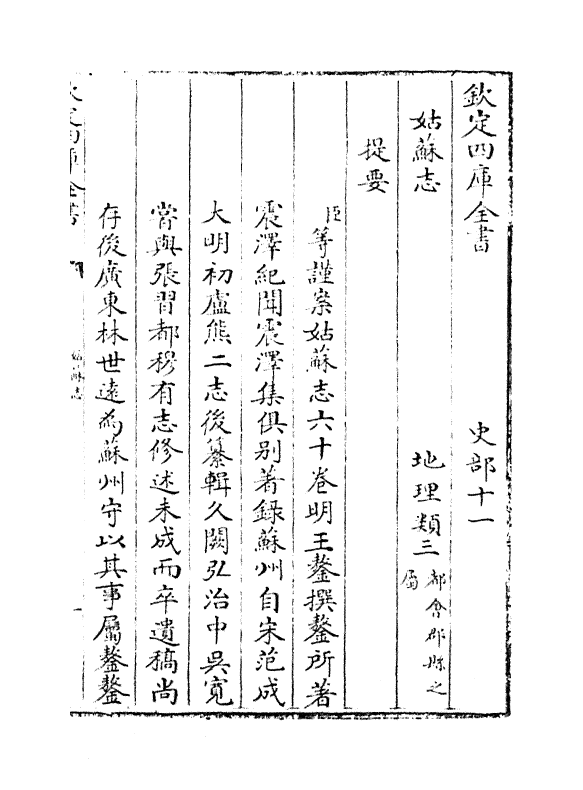 欽定四庫全書　史部十一
姑蘇志　地理類三都會郡縣之屬
提要
臣等謹案姑蘇志六十卷明王鏊撰鏊所著
震澤紀聞震澤集俱別著錄蘇州自宋范成
大明初盧熊二志後纂輯久闕弘治中吳寛
嘗與張習都穆有志修述未成而卒遺稿尚
存後廣東林世遠為蘇州守以其事屬鏊鏊
欽定四庫全書
姑蘇志
一